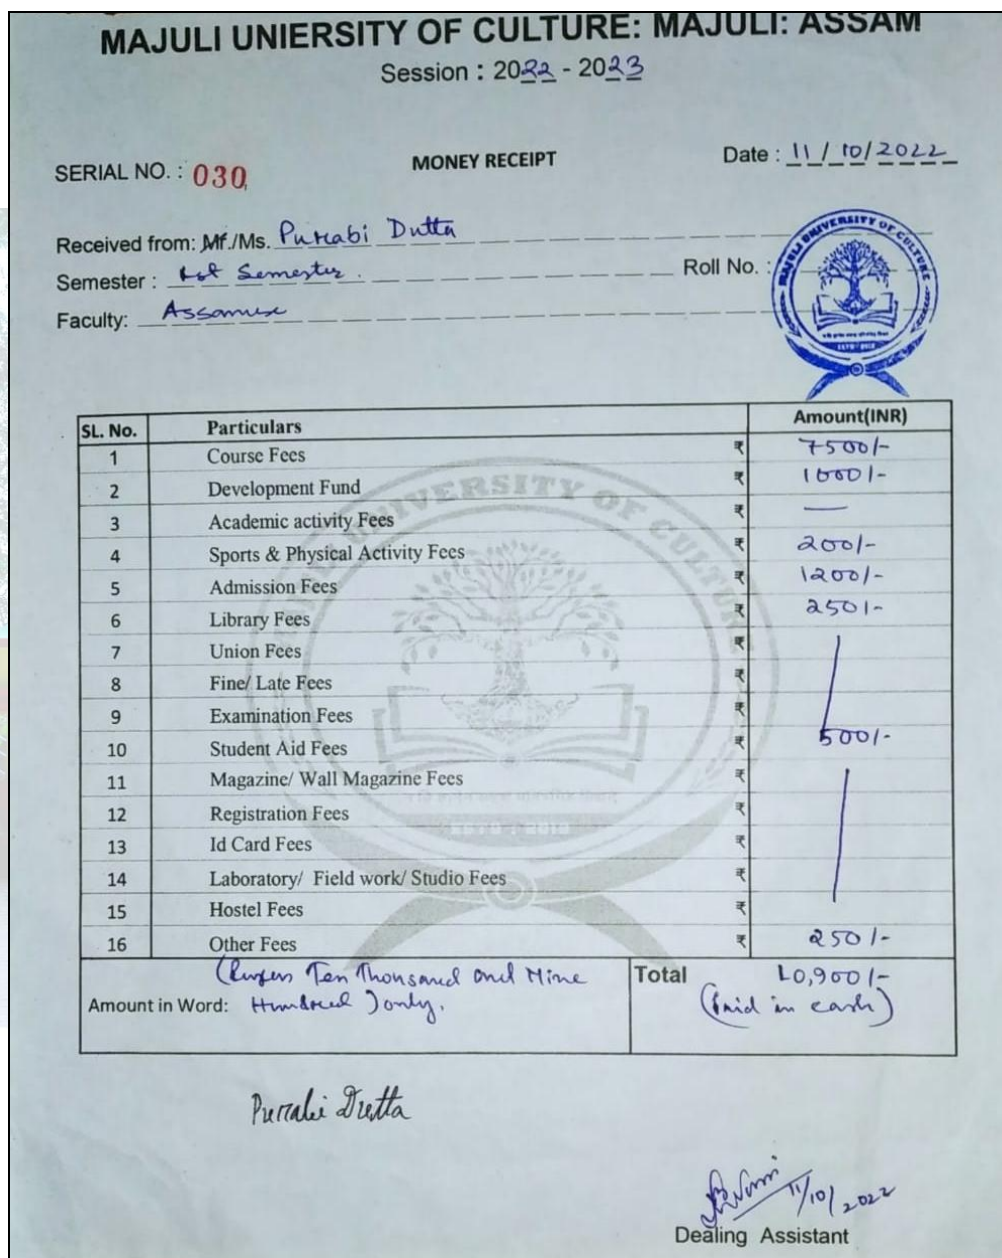 MAJULI UNIERSITY OF CULTURE: MAJULI: ASSAM
Session : 2022 - 2023
SERIAL NO. : 030
MONEY RECEIPT
Date : 11/10/2022
Received from: Mr./Ms. Purabi Dutta
Semester : 1st Semester.
Roll No. :
MAJULI UNIVERSITY OF CULTURE
Faculty: Assamese
SL. No. Particulars Amount(INR)
1 Course Fees ₹ 7500/-
2 Development Fund ₹ 1000/-
3 Academic activity Fees ₹ —
4 Sports & Physical Activity Fees ₹ 200/-
5 Admission Fees ₹ 1200/-
6 Library Fees ₹ 250/-
7 Union Fees ₹
8 Fine/ Late Fees ₹
9 Examination Fees ₹
10 Student Aid Fees ₹ 500/-
11 Magazine/ Wall Magazine Fees ₹
12 Registration Fees ₹
13 Id Card Fees ₹
14 Laboratory/ Field work/ Studio Fees ₹
15 Hostel Fees ₹
16 Other Fees ₹ 250/-
MAJULI UNIVERSITY OF CULTURE
(Rupees Ten Thousand and Nine
Amount in Word: Hundred) only.
Total 10,900/-
(Paid in cash)
Purabi Dutta
11/10/2022
Dealing Assistant